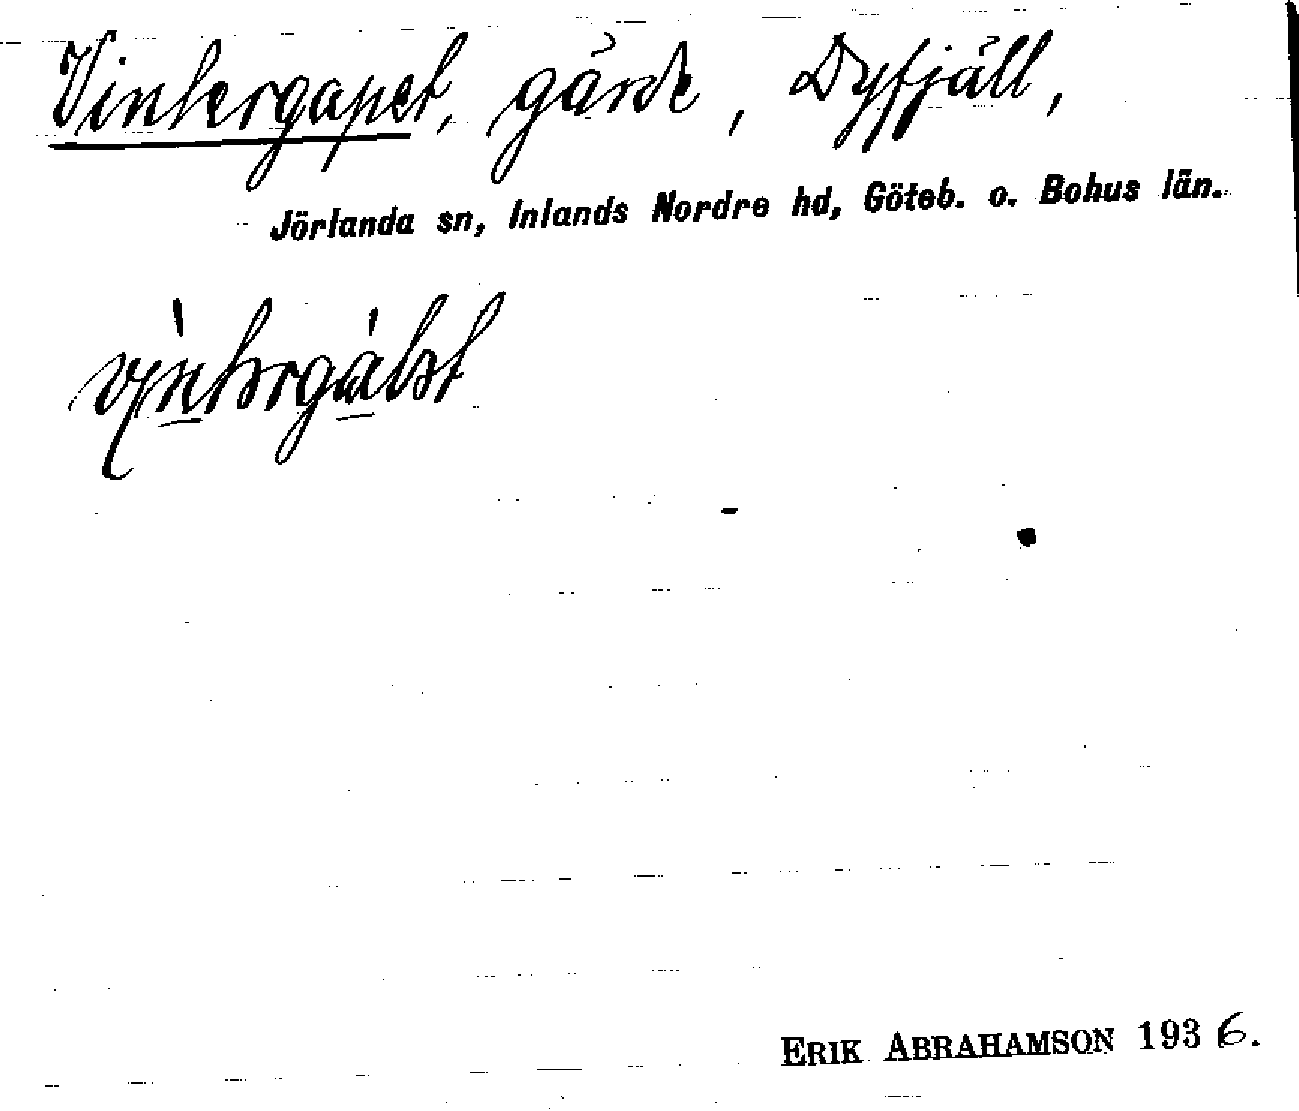 Vintergapet, gärde, Dyfjäll,
Jörlanda sn, Inlands Nordre hd, Göteb. o. Bohus län.
ERIK ABRAHAMSON 1936.